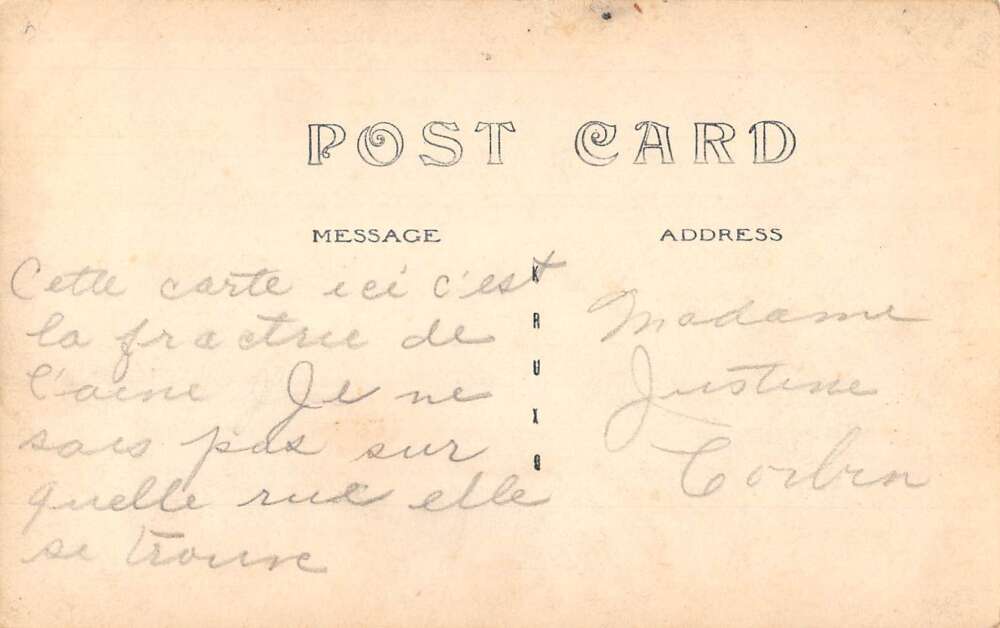 POST CARD
MESSAGE
ADDRESS
Cette carte ici c'est
la fractrie de
l'aine Je ne
sais pas sur
quelle rue elle
se trouve
KRUXO
Madame
Justine
Corbin